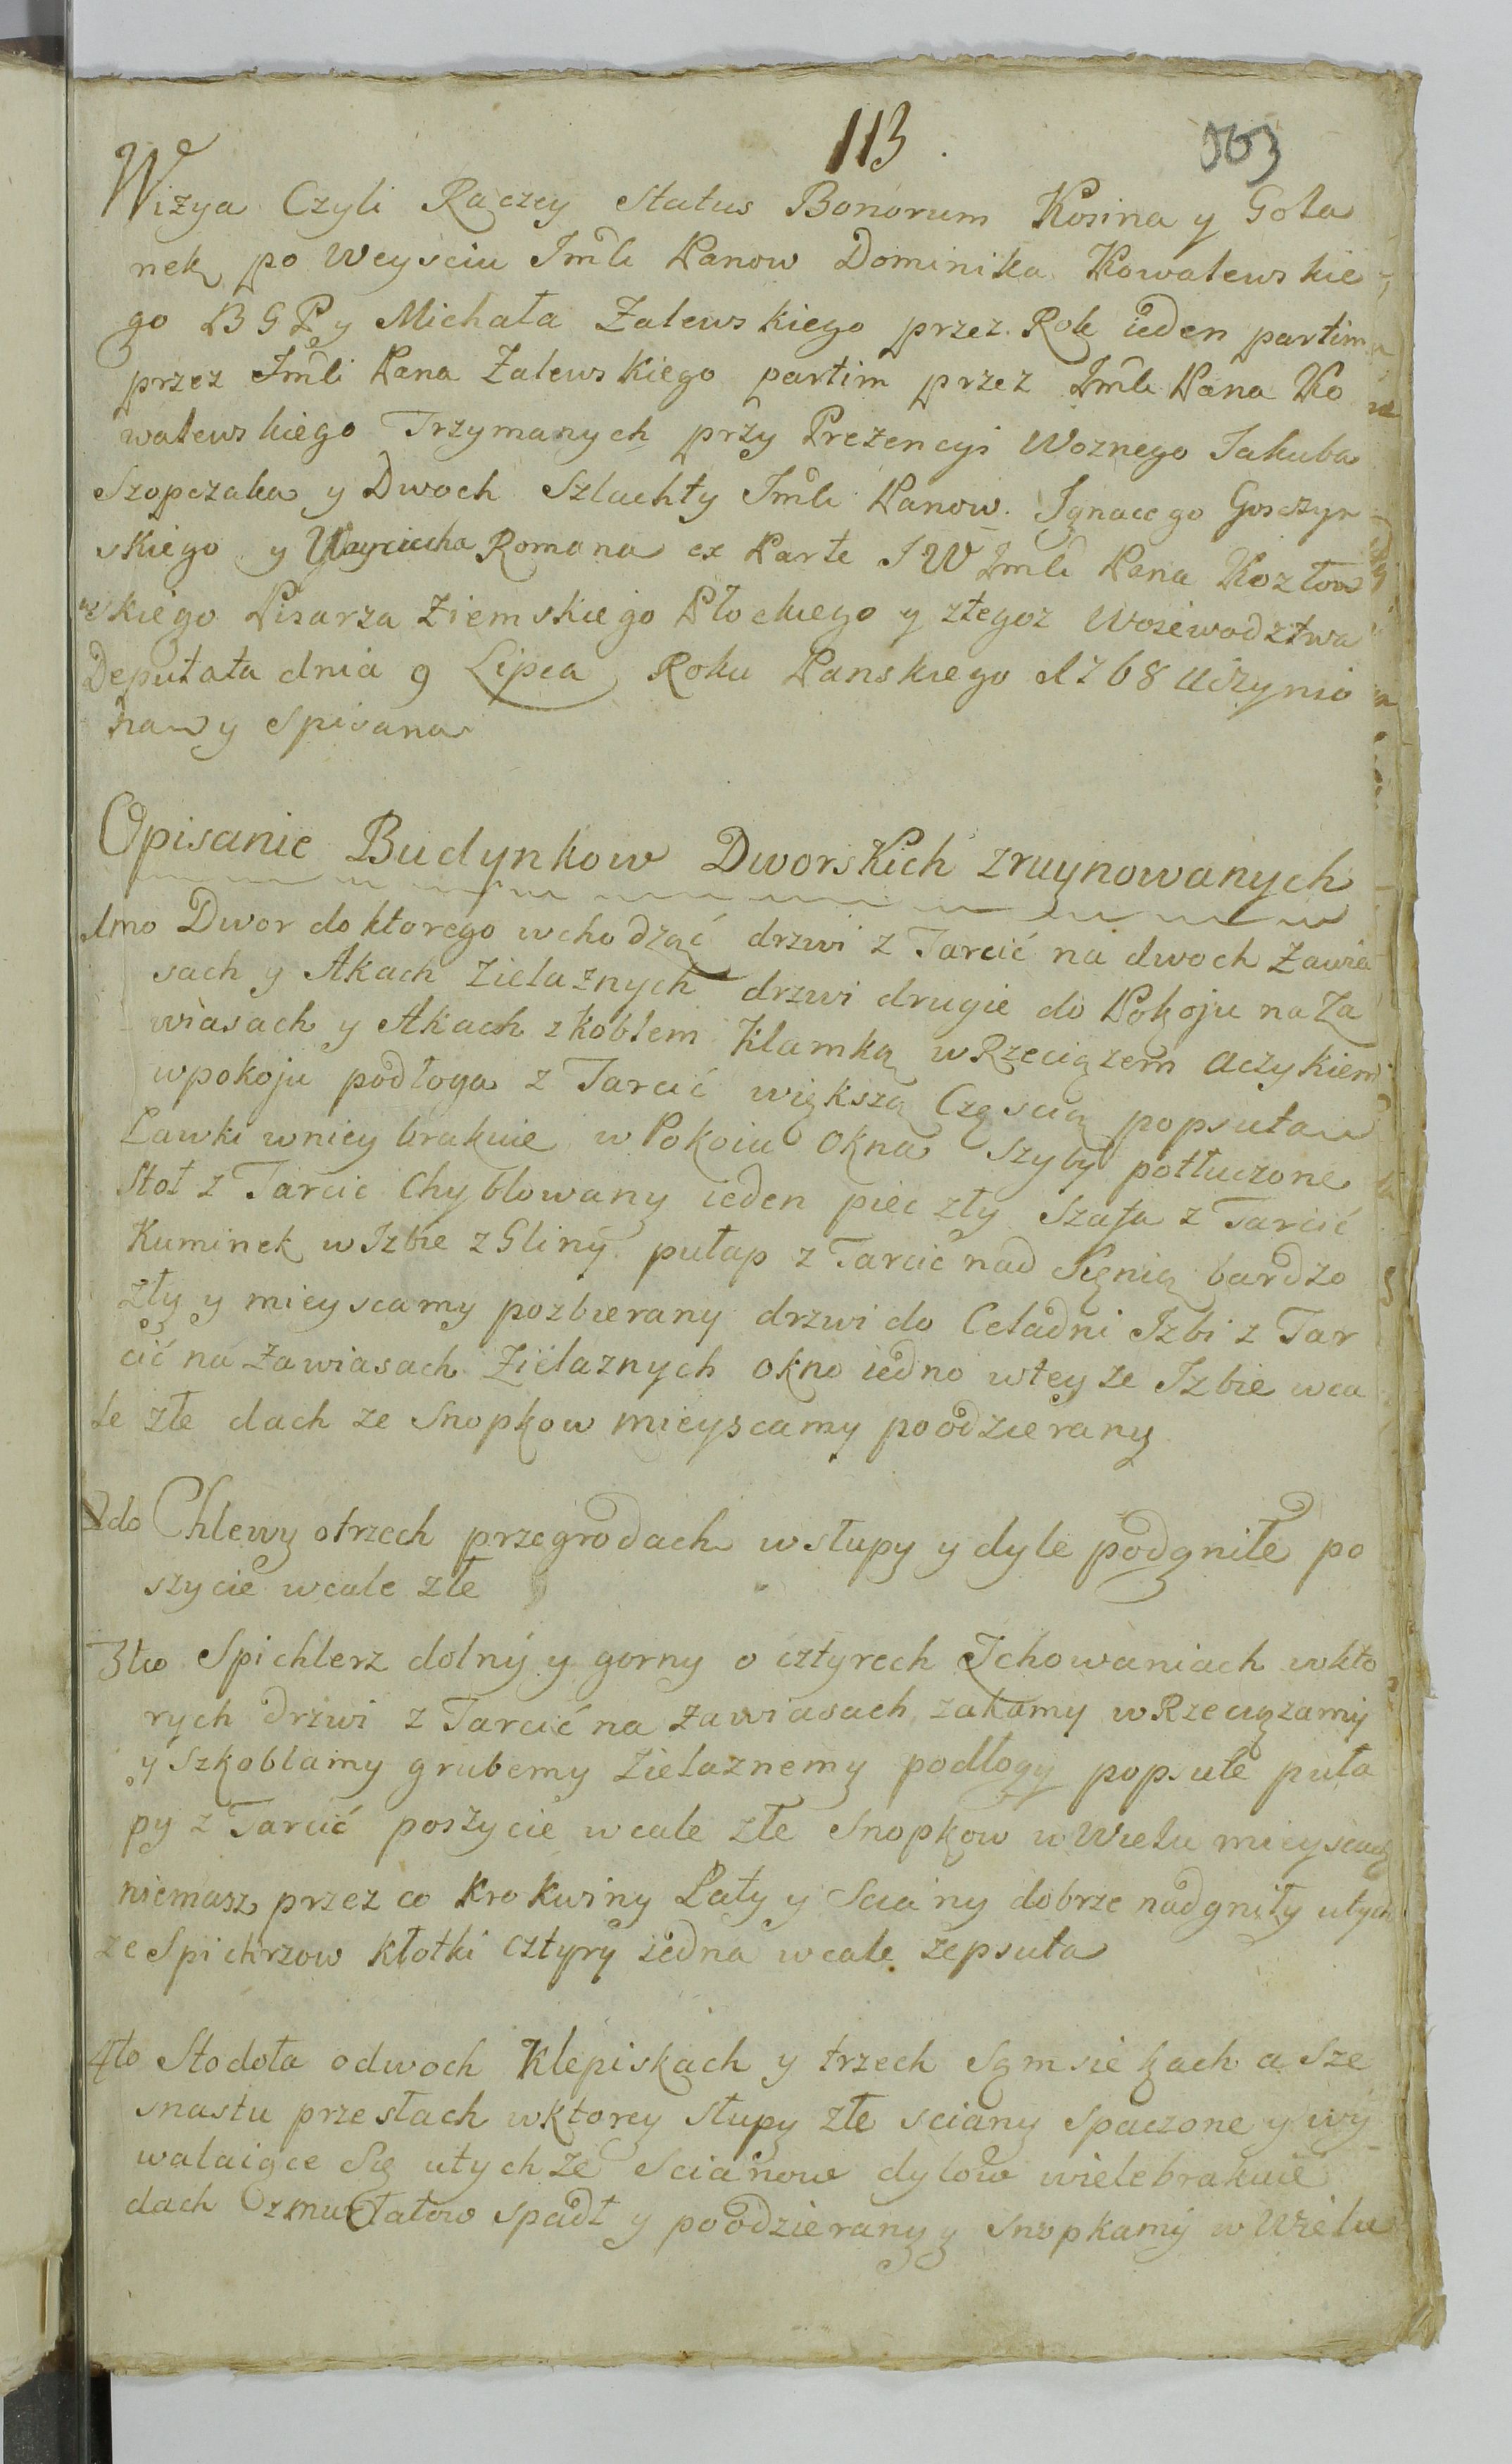 113.
503
Wizya Czyli Raczey Status Bonorum Kosina y Gola
nek po Weysciu Jmći Panow Dominika Kowalewskie
go B G P y Michała Zalewskiego przez Rok ieden partim
przez Jmći Pana Zalewskiego partim przez Jmći Pana Ko
walewskiego Trzymanych przy Prezencyi Woznego Jakuba
Szopczaka y Dwoch Szlachty Jmći Panow Jgnacego Gosczyn
skiego y Woyciecha Romana ex Parte J W Jmći Pana Kozłow
skiego Pisarza Ziemskiego Płockiego y ztegoz Woiewodztwa
Deputata dnia 9 Lipca Roku Panskiego 1768 Uczynio
na y Spisana
Opisanie Budynkow Dworskich zruynowanych
1mo Dwor do ktorego wchodząć drzwi z Tarcić na dwoch Zawia
sach y Akach Zielaznych drzwi drugie do Pokoju na Za
wiasach y Akach zkoblem Klamką wRzeciązem Aczykiem
wpokoju podłoga z Tarcić większą Częscią popsuta
Ławki wniey brakuie w Pokoiu Okna Szyby potłuczone
Stoł z Tarcic Chyblowany ieden piec zły Szafa z Tarcić
Kuminek wIzbie zGliny pułap z Tarcic nad Sięnią bardzo
zły y mieyscamy pozbierany drzwi do Celadni Izbi z Tar
cić na Zawiasach Zielaznych okno iedno wteyze Izbie wca
le złe dach ze Snopkow mieyscamy poodzierany
2do Chlewy otrzech przegrodach wstupy y dyle podgniłe po
szycie wcale złe
3tio Spichlerz dolny y gorny o cztyrech Schowaniach wkto
rych drzwi z Tarcić na zawiasach zakamy wRzeciązamy
y Szkoblamy grubemy Zielaznemy podłogy popsute puła
py z Tarcić poszycie wcale złe Snopkow w Wielu mieyscach
niemasz przez co krokwiny Łaty y Sciany dobrze nadgniły utych
ze Spichrzow kłotki cztyry iedna wcale zepsuta
4to Stodoła odwoch Klepiskach y trzech Sąmsiekach a Sze
snastu przesłach wktorey słupy złe sciany Spaczone y wy
walaiące Się utychze Scianow dylow wielebrakuie
dach spadł y poodzierany y snopkamy w Wielu